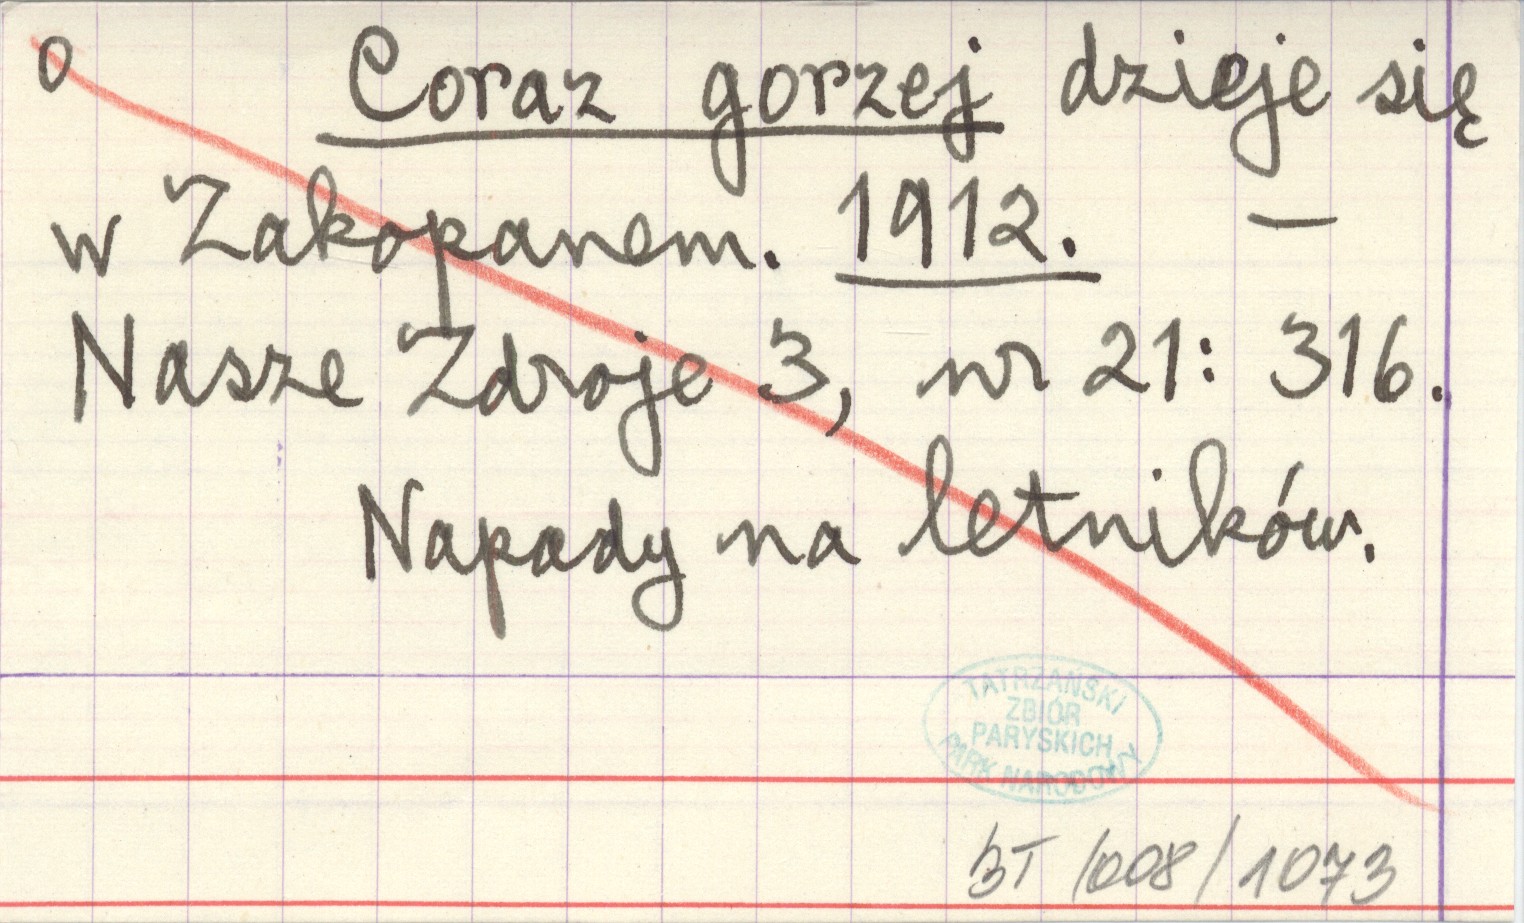 0 Coraz gorzej dzieje się
w Zakopanem. 1912. —
Nasze Zdroje 3, nr 21: 316.
Napady na letników.
TATRZAŃSKI
ZBIÓR
PARYSKICH
PARK NARODOWY
BT /008/1073